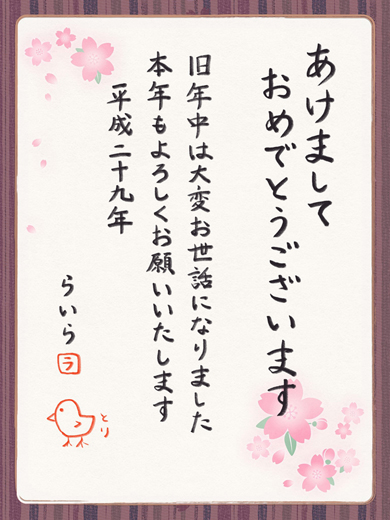 あけまして
おめでとうございます
旧年中は大変お世話になりました
本年もよろしくお願いいたします
平成二十九年
らいら
ラ
とり